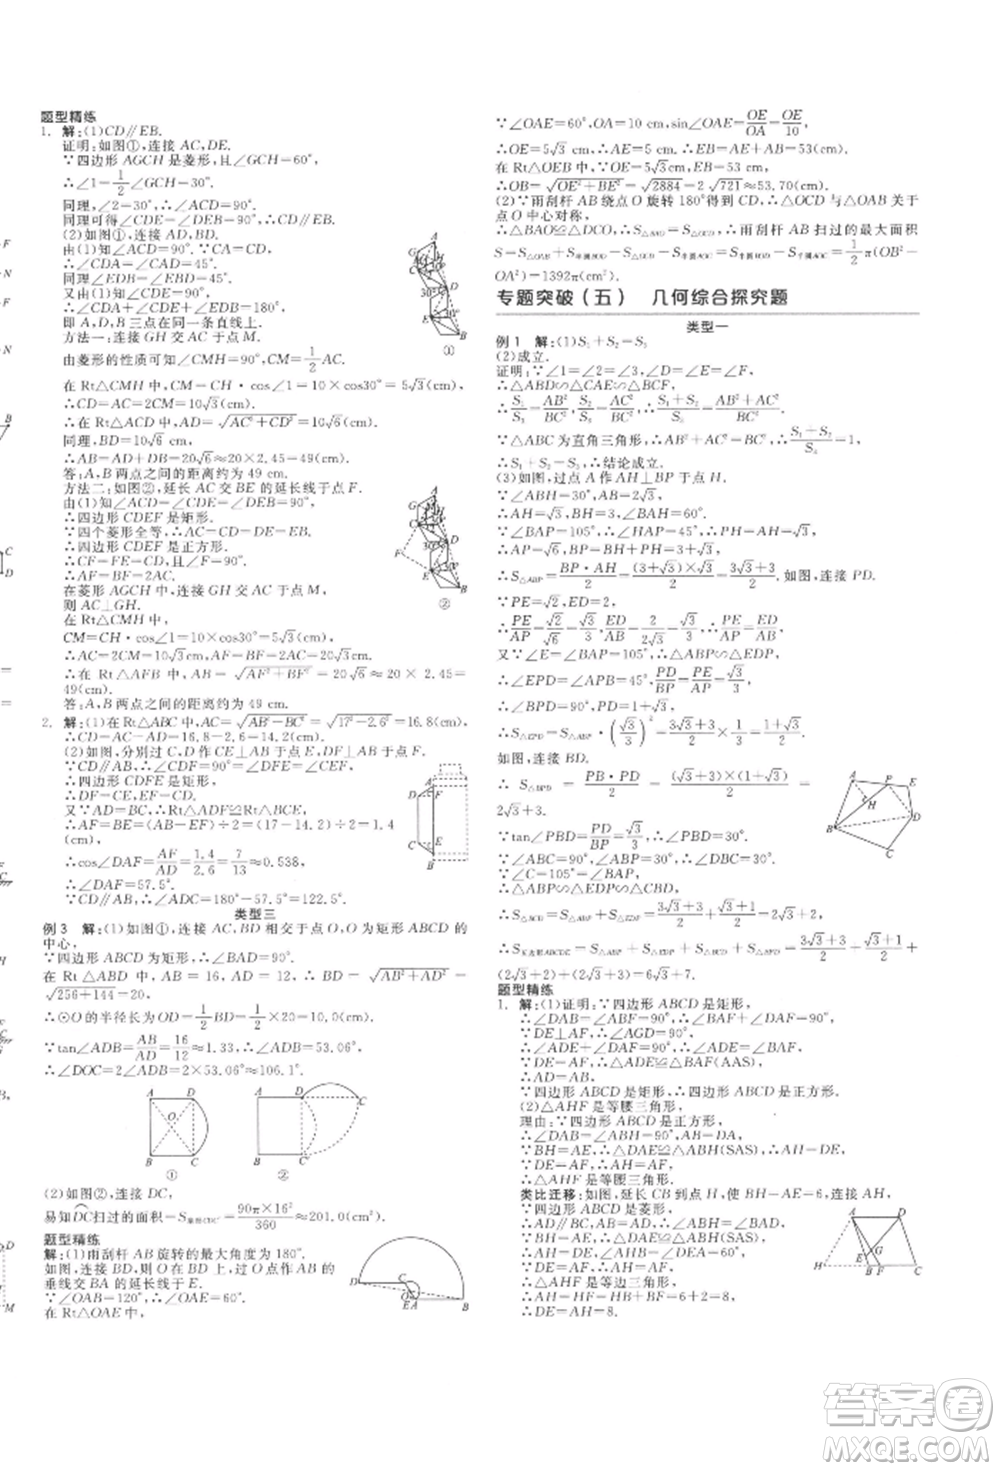 题型精练
1. 解:(1)CD∥EB.
证明:如图①,连接 AC,DE.
∵四边形 AGCH 是菱形,∠GCH=60°,
∴∠1=1/2∠GCH=30°.
同理,∠2=30°.∴∠ACD=90°.
同理可得∠CDE=90°.∴CD∥EB.
(2)如图①,连接 AD,BD.
由(1)知∠ACD=90°.∵CA=CD,
∴∠CDA=∠CAD=45°.
又由(1)知∠CDE=90°,∠BDE=∠CDA=45°,
∴∠CDA+∠CDE+∠BDE=180°,
即 A,D,B 三点在同一条直线上.
方法一:连接 GH 交 AC 于点 M.
由菱形的性质可知∠CMH=90°,CM=1/2AC.
在 Rt△CMH 中,CM=CH·cos∠1=10×cos30°=5√3(cm),
∴CD=AC=2CM=10√3(cm).
在 Rt△ACD 中,AD=√(AC²+CD²)=10√6(cm).
同理,BD=10√6 cm,
∴AB=AD+BD=20√6≈20×2.45=49(cm).
答:A,B 两点之间的距离约为 49 cm.
方法二:如图②,延长 AC 交 BE 的延长线于点 F.
由(1)知∠ACD=∠CDE=∠DEB=90°,
∴四边形 CDEF 是矩形.
∵四个菱形全等,∴CD=DE.
∴四边形 CDEF 是正方形.
∴CF=FE=CD=AC.
∴AF=BF=2AC.
在菱形 AGCH 中,连接 GH 交 AC 于点 M,
则 AC⊥GH.
在 Rt△CMH 中,
CM=CH·cos∠1=10×cos30°=5√3(cm),
∴AC=10√3(cm).
∴在 Rt△AFB 中,AB=√(AF²+BF²)=20√6≈20×2.45=
49(cm).
答:A,B 两点之间的距离约为 49 cm.
2. 解:(1)在 Rt△ABC 中,AC=√(AB²−BC²)=√(17²−2.6²)≈16.8(cm),
∴CD=AC−AD=16.8−2.6=14.2(cm).
(2)如图,分别过 C,D 作 CE⊥AB 于点 E,DF⊥AB 于点 F.
∵CD∥AB,
∴四边形 CDFE 是矩形.
∴DF=CE,EF=CD.
又∵AD=BC,∴Rt△ADF≌Rt△BCE.
∴AF=BE=(AB−EF)÷2=(17−14.2)÷2=1.4
(cm).
∴cos∠DAF=AF/AD=1.4/2.6=7/13≈0.538,
∴∠DAF=57.5°.
∵CD∥AB,∴∠ADC=180°−57.5°=122.5°.
类型三
例 3 解:(1)如图①,连接 AC,BD 相交于点 O,O 为矩形 ABCD 的
中心.
∵四边形 ABCD 为矩形,∴∠BAD=90°.
在 Rt△BAD 中,∵AB=16,AD=12,∴BD=√(AB²+AD²)=
√(256+144)=20(cm).
∴⊙O 的半径长为 OD=1/2BD=1/2×20=10(cm).
∵tan∠ADB=AB/AD=16/12≈1.33,∴∠ADB=53.06°.
∴∠DOC=2∠ADB=2×53.06°≈106.1°.
①
②
(2)如图②,连接 DC,
易知DC扫过的面积=S扇形CDC′=90π×16²/360≈201.0(cm²).
题型精练
解:(1)雨刮杆 AB 旋转的最大角度为 180°.
如图,连接 BD,则 O 在 BD 上,过 O 点作
垂线交 BA 的延长线于 E.
∵∠OAB=120°,∴∠OAE=60°.
在 Rt△OAE 中,
∵∠OAE=60°,OA=10 cm,sin∠OAE=OE/OA=OE/10,
∴OE=5√3 cm,∴AE=5 cm.∴EB=AE+AB=53(cm).
在 Rt△OEB 中,∵OE=5√3 cm,EB=53 cm,
∴OB=√(OE²+BE²)=√2884=2√721≈53.70(cm).
(2)∵雨刮杆 AB 绕点 O 旋转 180°得到 CD,∴△OCD 与△OAB 关于
点 O 中心对称,
∴△BAO≌△DCO,∴S△BAO=S△DCO.∴雨刮杆 AB 扫过的最大面积
S=S△DCO+S半圆BOD−S半圆AOC−S△BAO=S半圆BOD−S半圆AOC=1/2π(OB²−
OA²)=1392π(cm²).
专题突破(五) 几何综合探究题
类型一
例 1 解:(1)S₁+S₂=S₃
(2)成立.
证明:∵∠1=∠2=∠3,∠D=∠E=∠F,
∴△ABD∽△CAE∽△BCF,
∴S₁/S₃=AB²/BC²,S₂/S₃=AC²/BC².∴(S₁+S₂)/S₃=(AB²+AC²)/BC².
∵△ABC 为直角三角形,∴AB²+AC²=BC².∴(S₁+S₂)/S₃=1,
∴S₁+S₂=S₃.∴结论成立.
(3)如图,过点 A 作 AH⊥BP 于点 H.
∵∠ABH=30°,AB=2√3,
∴AH=√3,BH=3,∠BAH=60°.
∵∠BAP=105°,∴∠HAP=45°,∴PH=AH=√3.
∴S△ABP=BP·AH/2=(3+√3)×√3/2=(3√3+3)/2.如图,连接 PD.
∵PE=√2,ED=2,
∴PE/AP=√2/√6=√3/3,ED/AB=2/2√3=√3/3.∴PE/AP=ED/AB.
又∵∠E=∠BAP=105°,∴△ABP∽△EDP,
∴∠EPD=∠APB=45°,PD/BP=PE/AP=√3/3.
∴∠BPD=90°,PD=1+√3.
∴S△EPD=S△ABP·(√3/3)²=(3√3+3)/2×1/3=(√3+1)/2.
如图,连接 BD.
∴S△BPD=PB·PD/2=(3+√3)×(1+√3)/2=
2√3+3.
∵tan∠PBD=PD/BP=√3/3,∴∠PBD=30°.
∵∠ABC=90°,∠ABP=30°,∴∠DBC=30°.
∵∠C=105°,∴△ABP∽△EDP∽△CBD,
∴S△BCD=S△ABP+S△EDP=(3√3+3)/2+(√3+1)/2=2√3+2.
∴S五边形ABCDE=S△ABP+S△EDP+S△BPD+S△BCD=(3√3+3)/2+(√3+1)/2+
(2√3+2)+(2√3+3)=6√3+7.
题型精练
1. 解:(1)证明:∵四边形 ABCD 是矩形,
∴∠DAB=∠ABF=90°,∴∠GAD+∠BAF=90°.
∵DE⊥AF,∴∠AGD=90°.
∴∠GAD+∠ADE=90°,∴∠ADE=∠BAF.
∵DE=AF,∴△ADE≌△BAF(AAS).
∴DA=AB.
∵四边形 ABCD 是矩形,∴四边形 ABCD 是正方形.
(2)△AHF 是等腰三角形,
理由:∵四边形 ABCD 是正方形,
∴∠DAB=∠ABH=90°,AB=DA.
∵BH=AE,∴△DAE≌△ABH(SAS),∴AH=DE.
∵DE=AF,∴AH=AF.
∴△AHF 是等腰三角形.
类比迁移:如图,延长 CB 到点 H,使 BH=AE=6,连接 AH.
∵四边形 ABCD 是菱形,
∴AD∥BC,AB=AD.
∴∠ABH=∠BAD.
∵BH=AE,∴△DAE≌△ABH(SAS).
∴AH=DE,∠AHB=∠DEA=60°.
∵DE=AF,∴AH=AF.
∴△AHF 是等边三角形.
∴AH=HF=HB+BF=6+2=8,
∴DE=AH=8.
答案圈
MXQE.COM